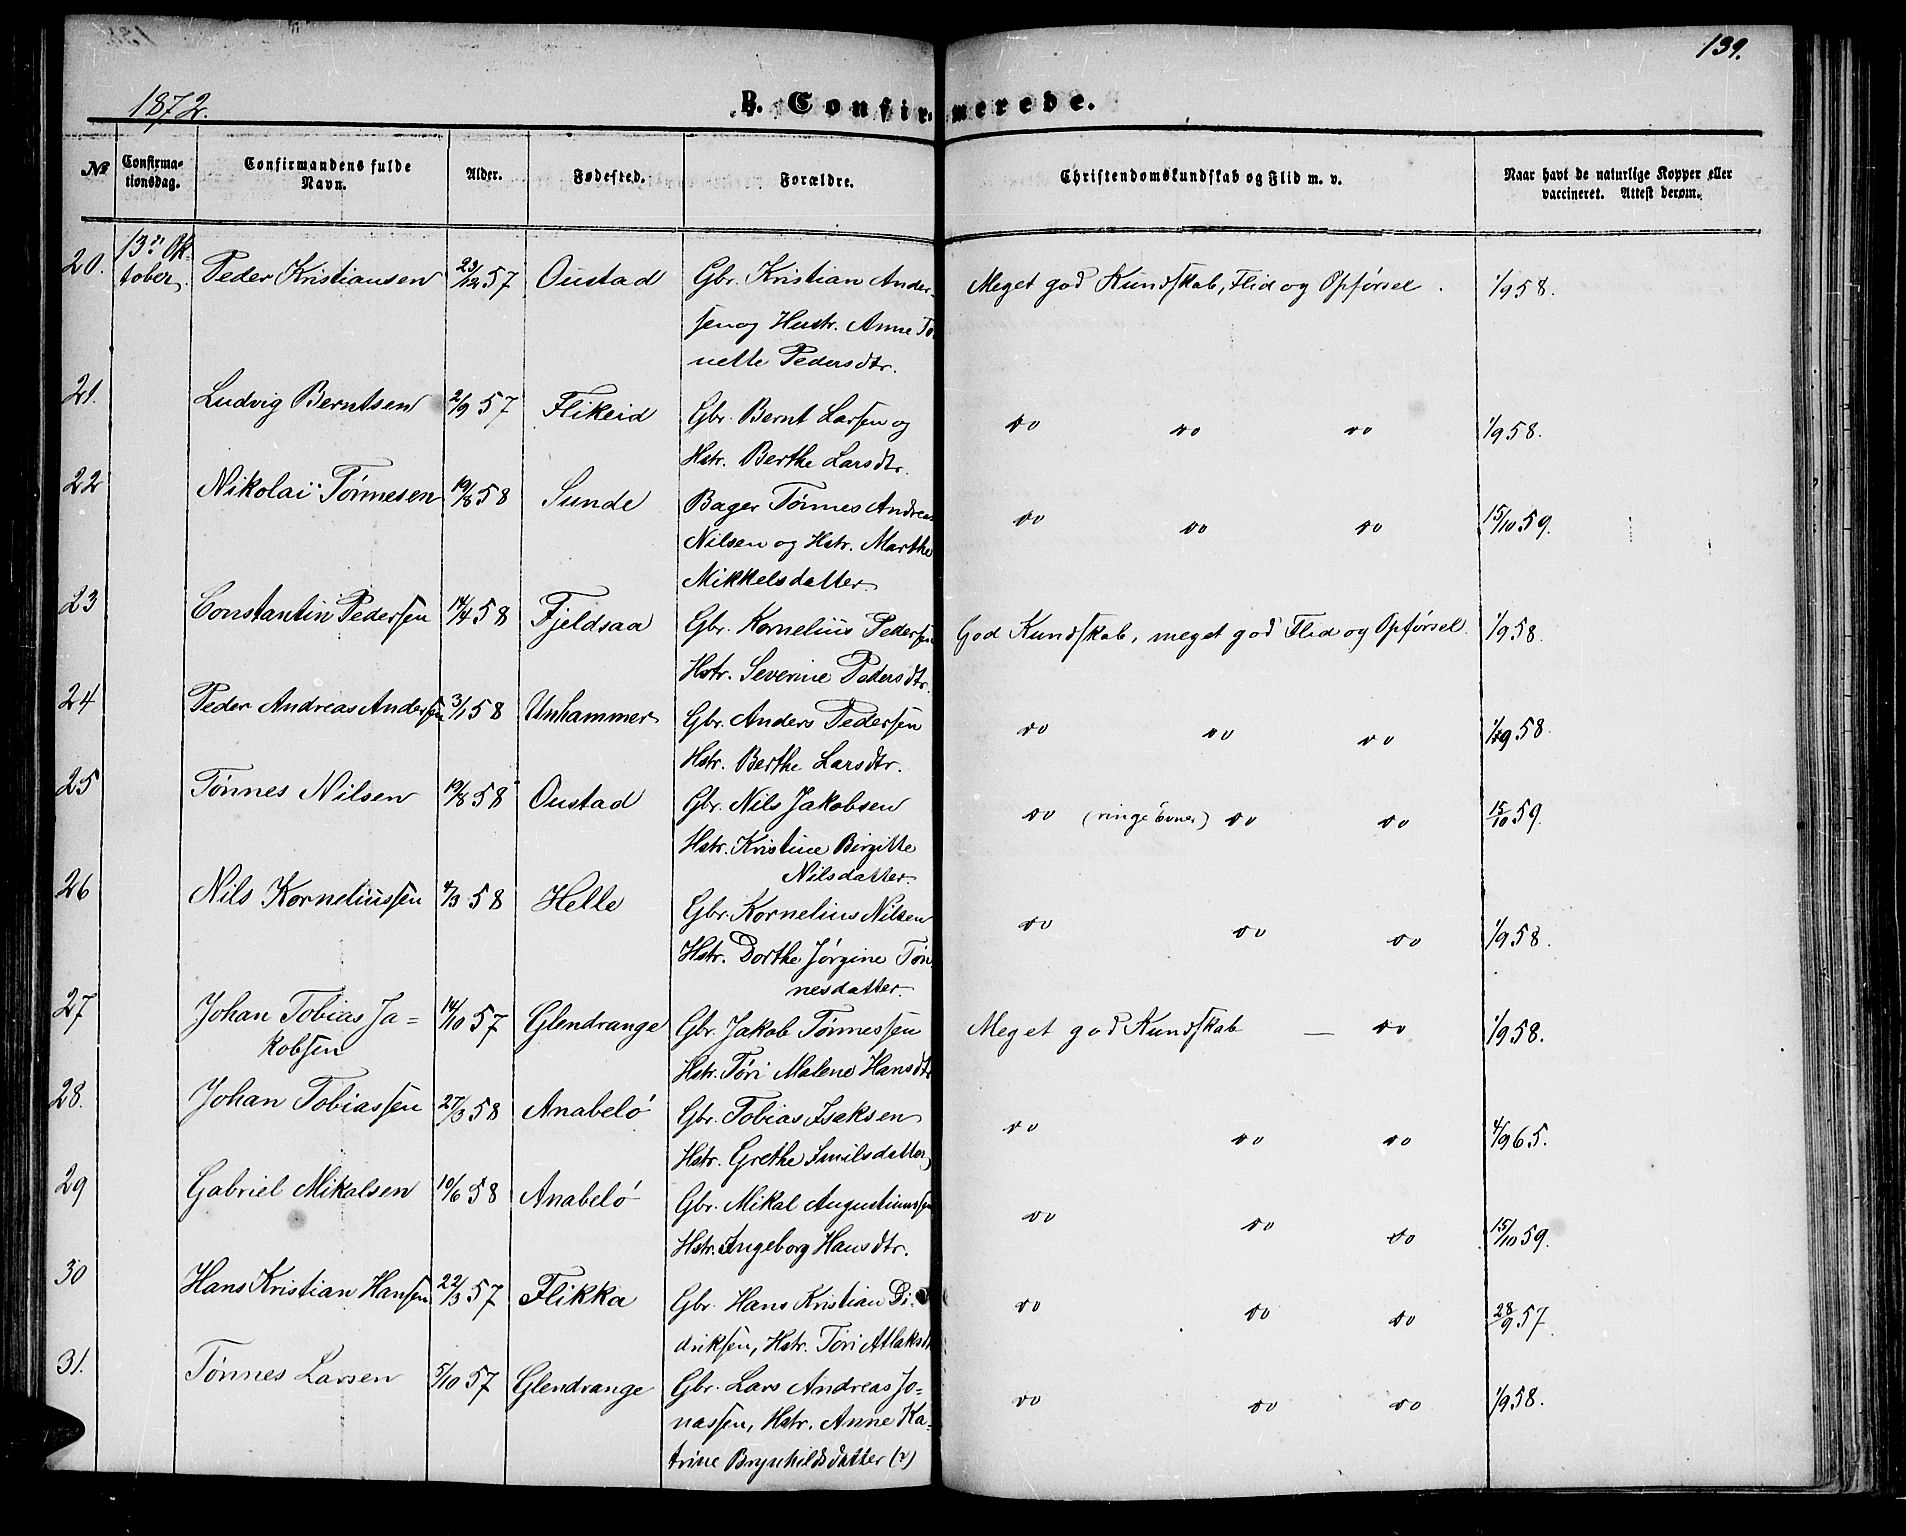 139.
1872.
B. Confirmerede.
№
Confirma-
tionsdag.
Confirmandens fulde
Navn.
Alder.
Fødested.
Forældre.
Christendomskundskab og Flid m. v.
Naar havt de naturlige Kopper eller
vaccineret. Attest derom.
20. 13de Ok- Peder Kristiansen 23/12 57 Oustad Gbr. Kristian Ander- Meget god Kundskab, Flid og Opførsel. 1/9 58.
tober sen og Hustr. Anne To
nette Pedersdtr.
21. Ludvig Berntsen 2/9 57 Flikeid Gbr. Bernt Larsen og do do do 1/9 58.
Hstr. Berthe Larsdtr.
22 Nikolai Tönnesen 19/8 58 Sunde Bager Tönnes Andreas do do do 15/10 59.
Nilsen og Hstr. Marthe
Mikkelsdatter
23 Constantin Pedersen 14/4 58 Fjeldsaa Gbr. Kornelius Pedersen God Kundskab, meget god Flid og Opførsel. 1/9 58.
Hstr. Severine Pedersdtr.
24 Peder Andreas Andersen 3/1 58 Unhammer Gbr. Anders Pedersen do do do 1/9 58
Hstr. Berthe Larsdtr.
25 Tönnes Nilsen 19/8 58 Oustad Gbr. Nils Jakobsen do (ringe Evner) do do 15/10 59.
Hstr. Kristine Birgitte
Nilsdatter.
26 Nils Korneliussen 4/3 58 Helle Gbr. Kornelius Nilsen do do do 1/9 58.
Hstr. Dorthe Jörgine Tön
nesdatter.
27 Johan Tobias Ja= 14/10 57 Glendrange Gbr. Jakob Tönnessen Meget god Kundskab — do 1/9 58.
kobsen Hstr. Töri Malene Hansdtr
28. Johan Tobiassen 27/3 58 Anabelö Gbr. Tobias Isaksen do do do 4/9 65.
Hstr. Grethe Emilsdatter
29 Gabriel Mikalsen 10/6 58 Anabelö Gbr. Mikal Augustinussen do do do 15/10 59.
Hstr. Ingeborg Hansdtr.
30 Hans Kristian Hansen 22/3 57 Flikka Gbr. Hans Kristian Di- do do do 28/9 57.
driksen, Hstr. Töri Atlaksd
31. Tönnes Larsen 5/10 57 Glendrange Gbr. Lars Andreas Jo= do do do 1/9 58.
nassen, Hstr. Anne Ka=
trine Brynhildsdatter (?)